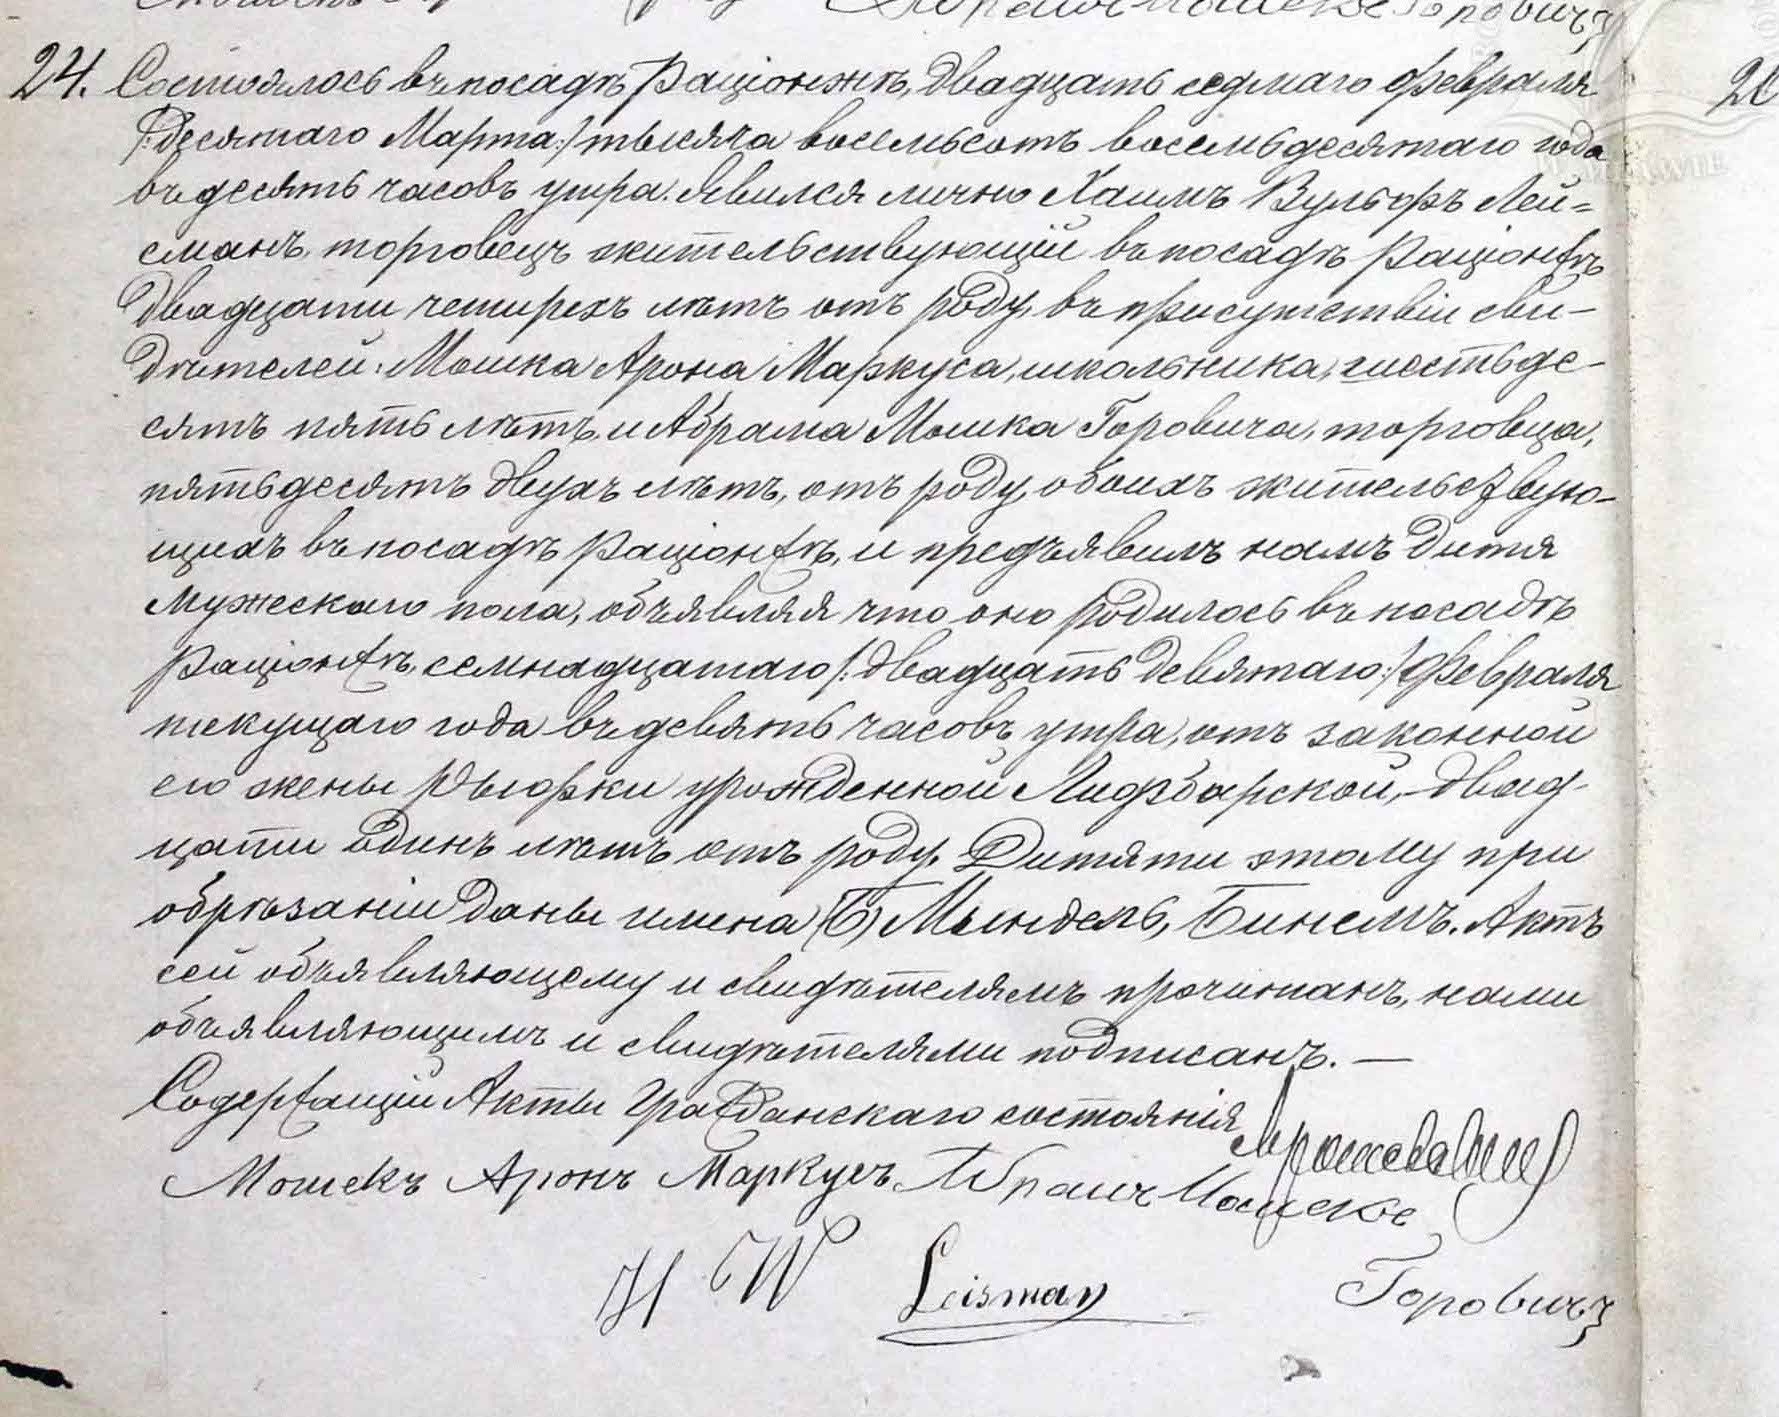 Горовичъ
24. Состоялось въ посадѣ Раціонжѣ, двадцать седмаго февраля
/:десятаго Марта:/ тысяча восемьсотъ восемьдесятаго года
въ десять часовъ утра. Явился лично Хаимъ Вульфъ Лей=
сманъ, торговецъ жительствующій въ посадѣ Раціонжѣ
двадцати четырехъ лѣтъ отъ роду, въ присутствіи сви-
дѣтелей: Мошка Арона Маркуса, школьника, шестьде-
сятъ пять лѣтъ, и Абрама Мошка Горовича, торговца,
пятьдесятъ двухъ лѣтъ, отъ роду, обоихъ жительствую-
щихъ въ посадѣ Раціонжѣ, и предъявилъ намъ дитя
мужескаго пола, объявляя что оно родилось въ посадѣ
Раціонжѣ, семнадцатаго /:двадцать девятаго:/ февраля
текущаго года въ девять часовъ утра, отъ законной
его жены Рывки урожденной Лидзбарской, двад-
цати одинъ лѣтъ отъ роду. Дитяти этому при
обрѣзаніи даны имена (Б) Мындель, Бинемъ. Актъ
сей объявляющему и свидѣтелямъ прочитанъ, нами
объявляющимъ и свидѣтелями подписанъ. —
Содержащій Акты Гражданскаго состоянія
Мошекъ Аронъ Маркусъ Абрамъ Мошекъ
H W Leisman Горовичъ